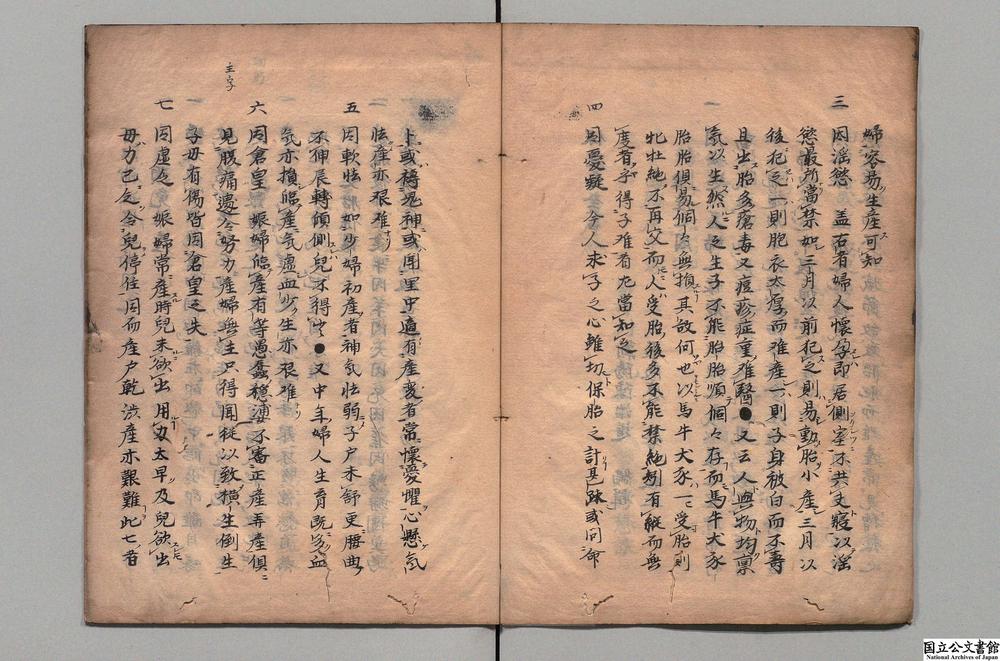 婦容易生産可知
三 因淫慾 盖古者婦人懷孕即居側室不共丈寝以淫
慾最所當禁如三月以前犯之則易動胎小産三月以
後犯之一則胞衣太厚而难産一則子身被白而不壽
且出胎多瘡毒又痘疹症重难醫●又云人與物均禀
氣以生然人之生子不能胎胎順個々存而馬牛犬豕
胎胎俱易個々無損其故何也以馬牛犬豕一受胎則
牝牡絶不再交而人受胎後多不能禁絶矧有縱而無
度者乎得子难者尤當知之
四 因憂疑 今人求子之心雖切保胎之計甚踈或问命
卜或祷鬼神或闾里中適有産变者常懷憂懼心懸氣
怯産亦艰难
五 因軟怯 如少婦初産者神氣怯弱子户未舒更腰曲
不伸展轉傾側兒不得出●又中年婦人生育既多血
氣亦損臨産氣虚血少生亦艰难
六 因倉皇 娠婦臨産有等愚蠢穏婆不審正産弄産俱
見腹痛遽令努力産婦無主只得聞從以致横生倒生
子母有傷皆因倉皇之失
七 因虚乏 娠婦當産時兒未欲出用力太早及兒欲出
母力已乏令兒停住因而産户乾渋産亦艱難此七者
主字
国立公文書館
National Archives of Japan